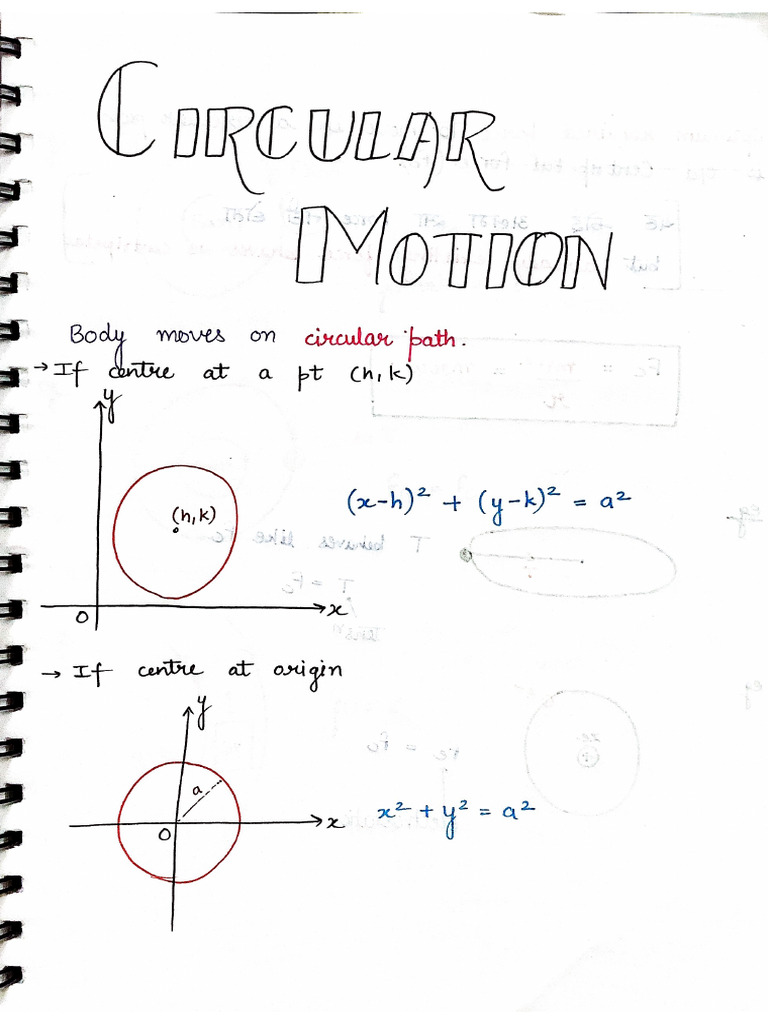 CIRCULAR
MOTION
Body moves on circular path.
→ If centre at a pt (h, k)
y
(h, k)
(x-h)² + (y-k)² = a²
x
O
→ If centre at origin
y
a
x² + y² = a²
x
O